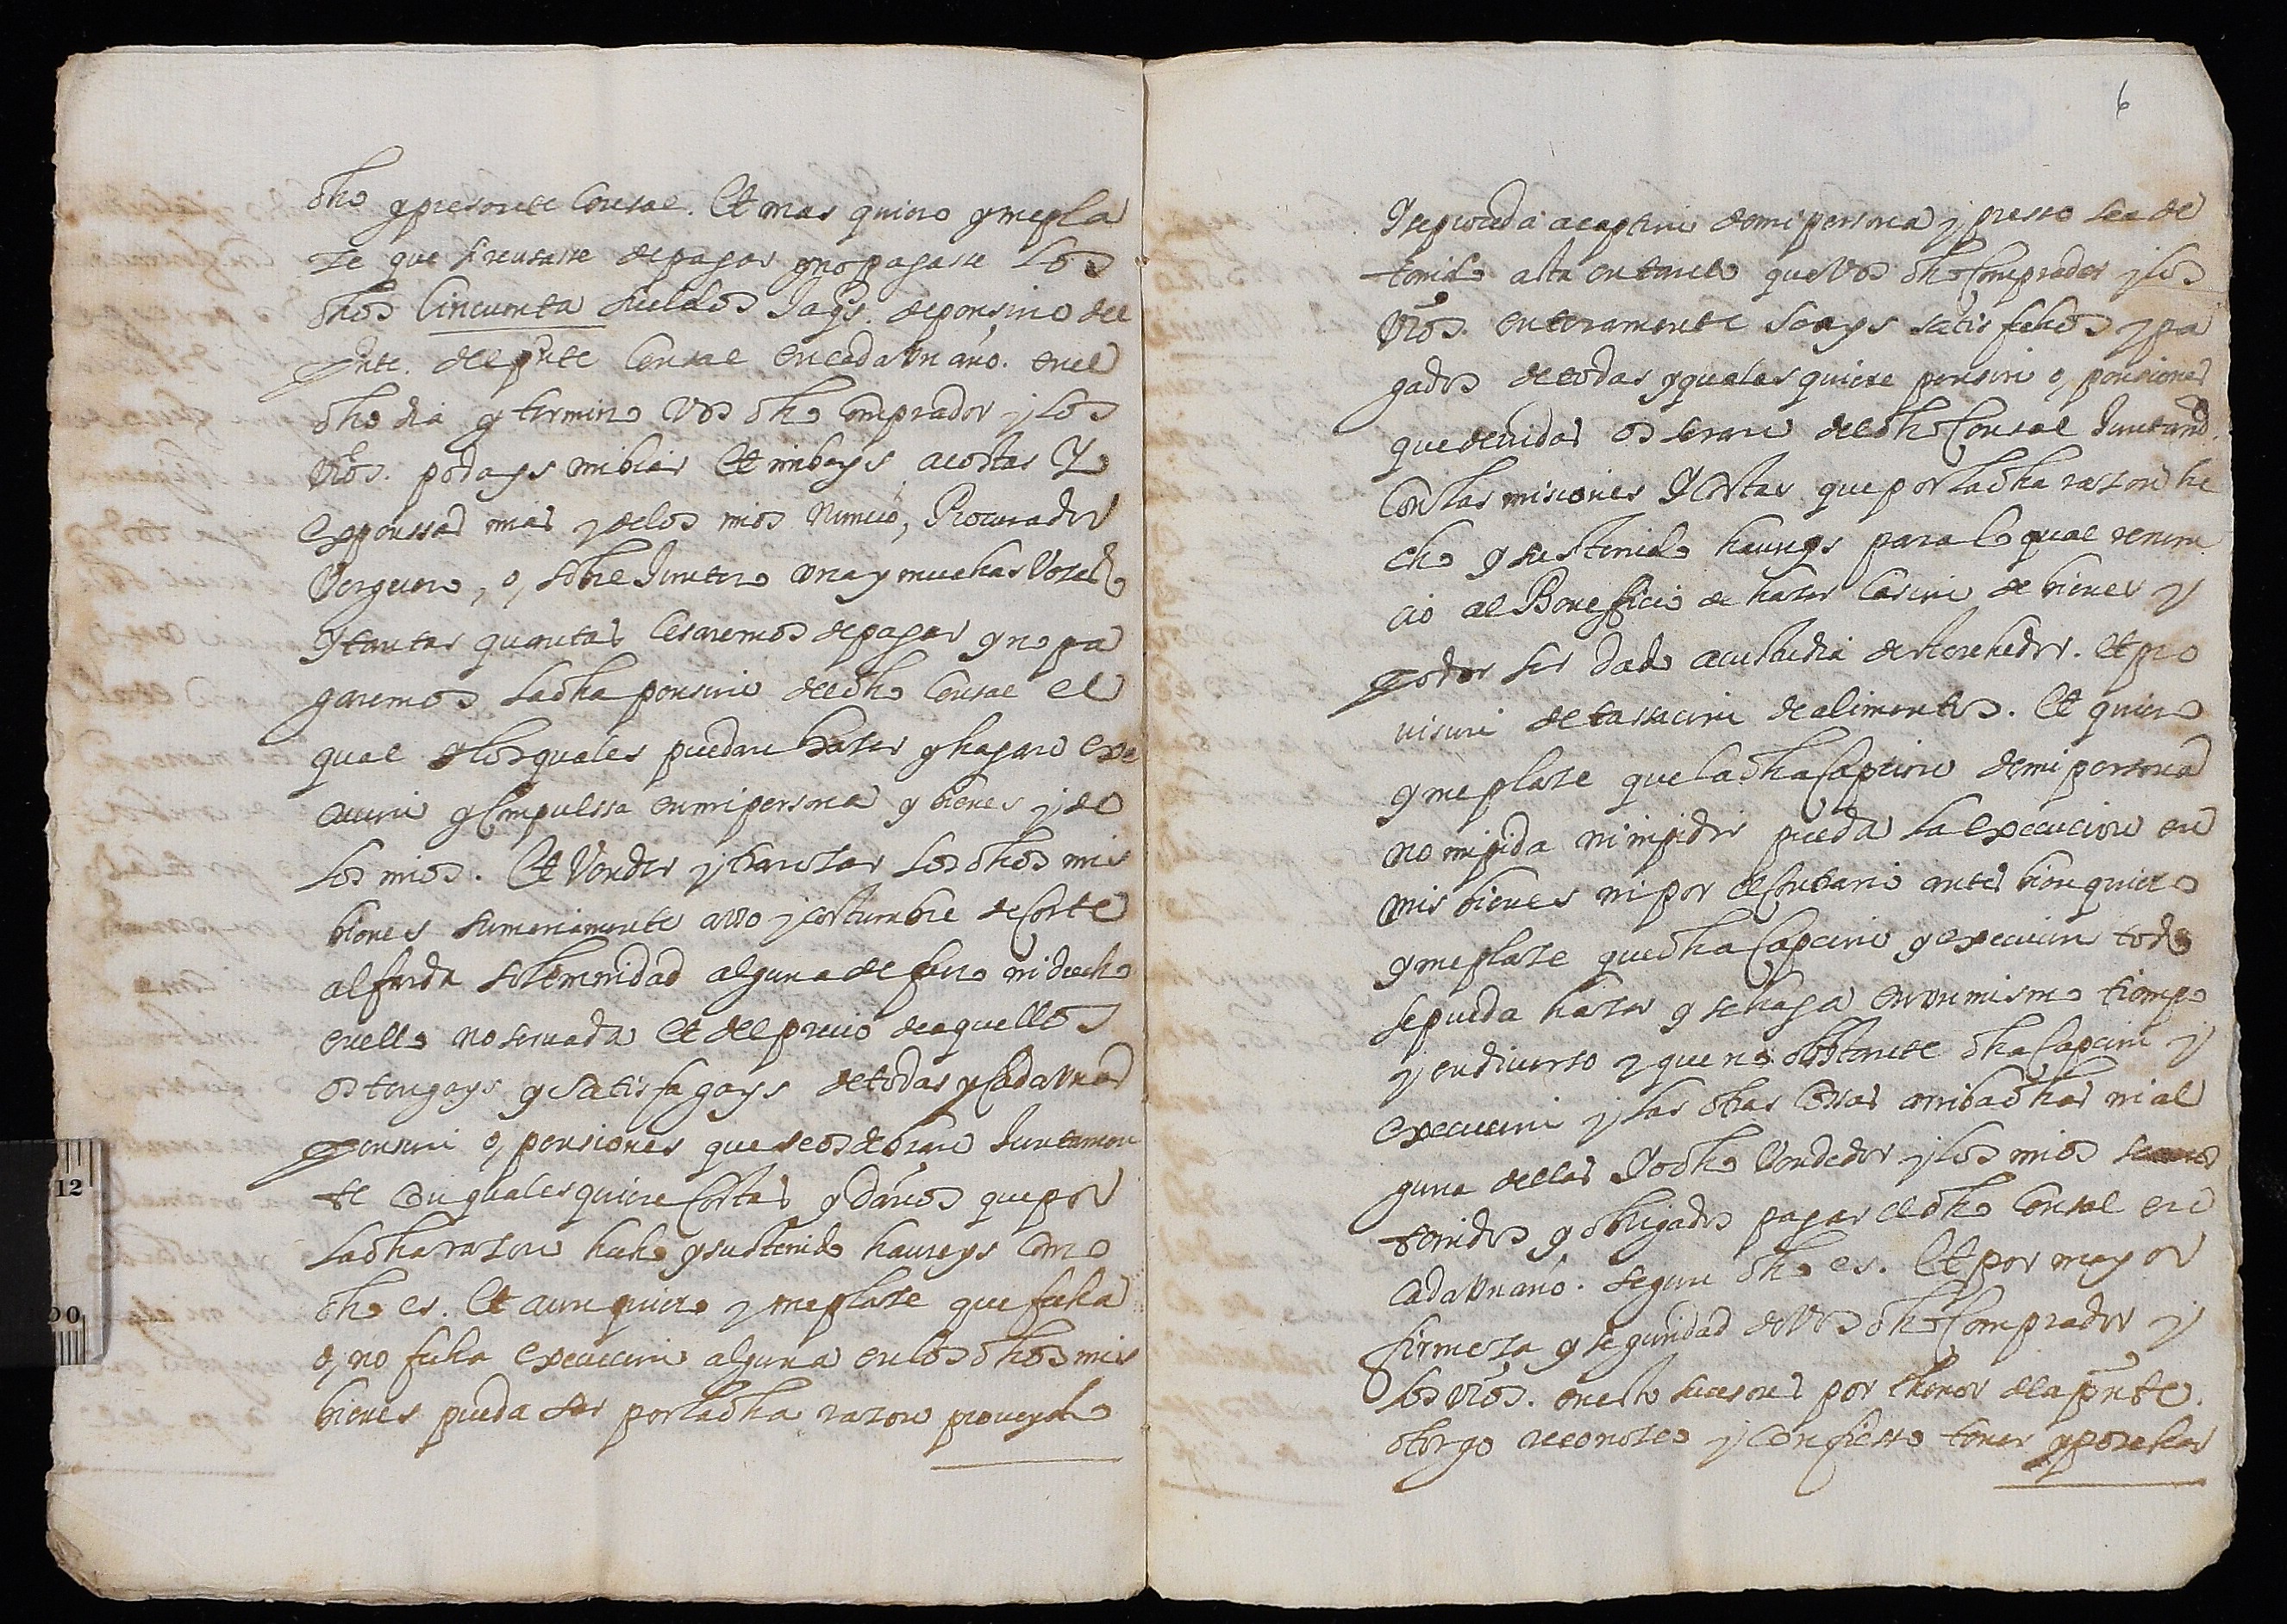 dho y presente Censal. Et mas quiero y me pla
ze que si reusasse de pagar y no pagasse los
dhos Cincuenta sueldos Jaqs. de pension del
pnte. del pnte Censal en cada un año. en el
dho dia y termino Vos dho Comprador y los
Vros. podays imbiar Et imbieys a costas Y
expenssas mias y de los mios nuncio, Procurador
Verguero, o, sobre Juntero una y muchas Vozes
y tantas quantas Cesaremos de pagar y no pa
garemos la dha pension del dho Censal el
qual o los quales puedan hazer y hagan exe
cucion y Compulssa en mi persona y bienes y de
los mios. Et Vender y tranzar los dhos mis
bienes sumariamente a uso y costumbre de Corte
alfarda solemnidad alguna de fuero ni drecho
en ello no seruada Et del precio de aquellos
os tengays y satisfagays de todas y Cada una
pension o, pensiones que se os debran Juntamen
te con qualesquiere Costas y Daños que por
la dha razon hecho y sustenido haureys como
dho es. Et aun quiero y me plaze que fecha
o, no fecha execucion alguna en los dhos mis
bienes pueda ser por la dha razon proueydo
6
Y se proceda a capcion de mi persona y presso sea de
tenido asta en tanto que Vos dho Comprador y los
Vros. enteramente seays satisfechos y pa
gados de todas y qualesquiere pension o, pensiones
que deuidas os seran del dho Censal Juntamd.
Con las misiones Y Costas que por la dha razon he
cho y sustenido haureys para lo qual renun
cio al Beneficio de hazer Cesion de bienes y
poder ser dado a custodia de Acrehedor. Et pro
uision de tassacion de alimentos. Et quiero
y me plaze que la dha Capcion de mi persona
no impida ni impidir pueda la execucion en
mis bienes ni por el Contrario antes bien quiero
y me plaze que dha Capcion y execucion todo
se pueda hazer y se haga en un mismo tiempo
y en diuerso y que no obstante dha Capcion y
execucion y las otras Cossas arriba dhas ni al
guna dellas Yo dho Vendedor y los mios seamos
tenidos y obligados pagar el dho Censal en
cada un año. segun dho es. Et por mayor
firmeza y seguridad de Vos dho Comprador y
los Vros. en esto sucesores por thenor de la pnte.
otorgo reconozco y Confiesso tener y poseher